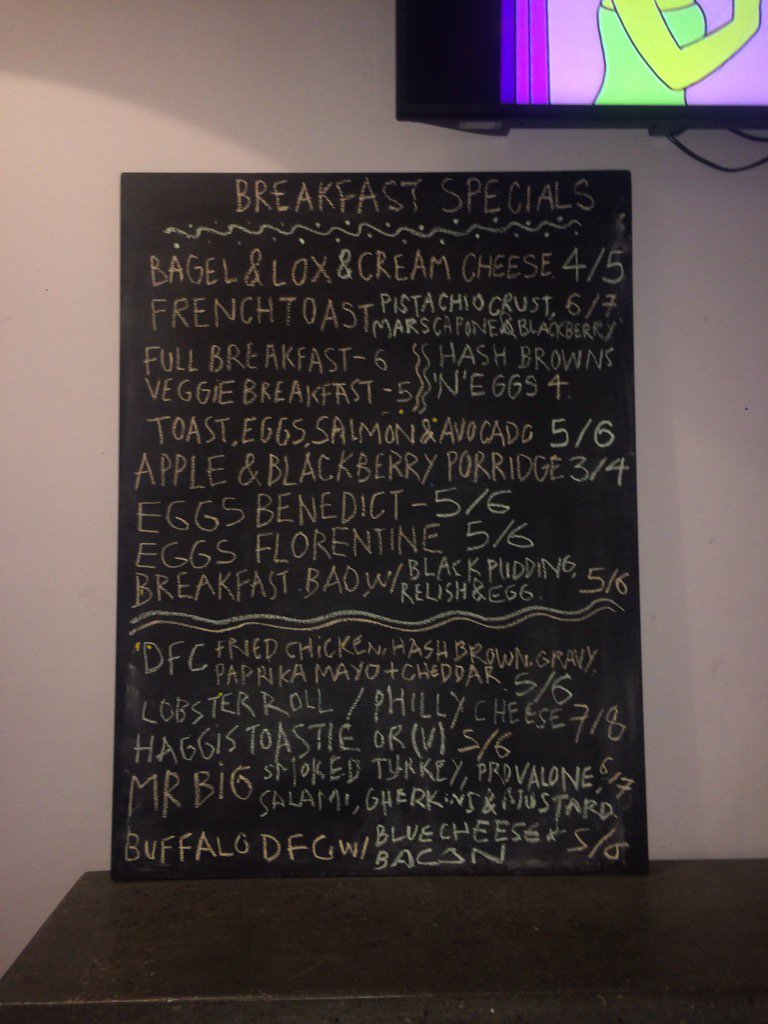 BREAKFAST SPECIALS
BAGEL & LOX & CREAM CHEESE 4/5
FRENCH TOAST PISTACHIO CRUST, 6/7
MARSCAPONE & BLACKBERRY
FULL BREAKFAST - 6
VEGGIE BREAKFAST - 5
HASH BROWNS
'N' EGGS 4
TOAST, EGGS, SALMON & AVOCADO 5/6
APPLE & BLACKBERRY PORRIDGE 3/4
EGGS BENEDICT - 5/6
EGGS FLORENTINE 5/6
BREAKFAST BAO W/ BLACK PUDDING,
RELISH & EGG. 5/6
DFC FRIED CHICKEN, HASH BROWN, GRAVY,
PAPRIKA MAYO + CHEDDAR 5/6
LOBSTER ROLL / PHILLY CHEESE 7/8
HAGGIS TOASTIE OR (V) 5/6
MR BIG SMOKED TURKEY, PROVALONE, 6/7
SALAMI, GHERKINS & MUSTARD.
BUFFALO DFC W/ BLUE CHEESE +
BACON 5/6